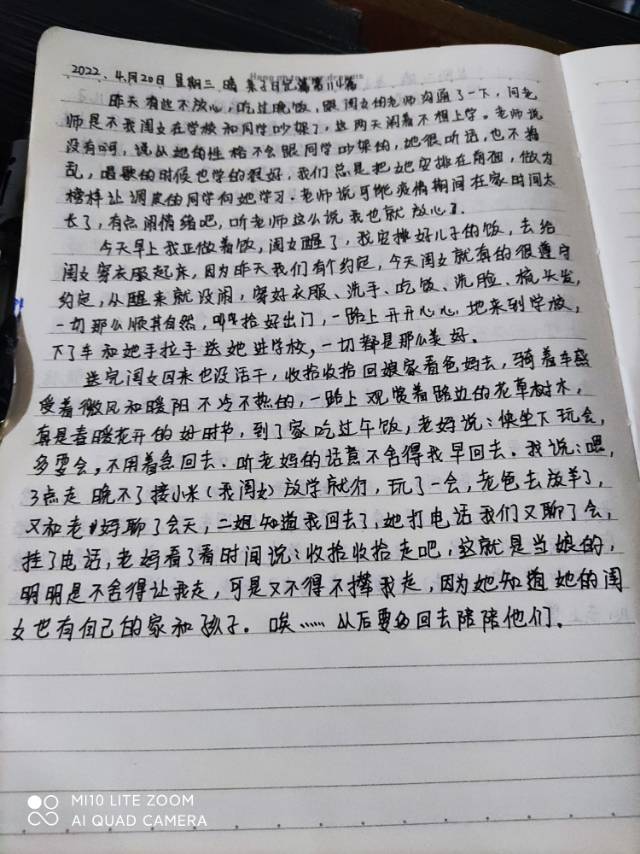 2022.4月20日 星期三 晴 亲子日记第114篇
昨天有些不放心,吃过晚饭,跟闺女的老师沟通了一下,问老
师是不我闺女在学校和同学吵架了,这两天闹着不想上学。老师说
没有啊,说从她的性格不会跟同学吵架的,她很听话,也不捣
乱,唱歌的时候也学的很好,我们总是把她安排在前面,做为
榜样让调皮的同学向她学习。老师说可能疫情期间在家时间太
长了,有点闹情绪吧,听老师这么说我也就放心了。
今天早上我正做着饭,闺女醒了,我安排好儿子的饭,去给
闺女穿衣服起床,因为昨天我们有个约定,今天闺女就真的很遵守
约定,从醒来就没闹,穿好衣服、洗手、吃饭、洗脸、梳头发,
一切那么顺其自然,收拾好出门,一路上开开心心地来到学校,
下了车和她手拉手送她进学校,一切都是那么美好。
送完闺女回来也没活干,收拾收拾回娘家看爸妈去,骑着车感
受着微风和暖阳不冷不热的,一路上观赏着路边的花草树木,
真是春暖花开的好时节,到了家吃过午饭,老妈说:快坐下玩会,
多耍会,不用着急回去。听老妈的话音不舍得我早回去。我说:嗯,
3点走 晚不了接小米(我闺女)放学就行,玩了一会,老爸去放羊了,
又和老妈聊了会天,二姐知道我回去了,她打电话我们又聊了会,
挂了电话,老妈看了看时间说:收拾收拾走吧,这就是当娘的,
明明是不舍得让我走,可是又不得不撵我走,因为她知道她的闺
女也有自己的家和孩子。唉……以后要多回去陪陪他们。
MI 10 LITE ZOOM
AI QUAD CAMERA